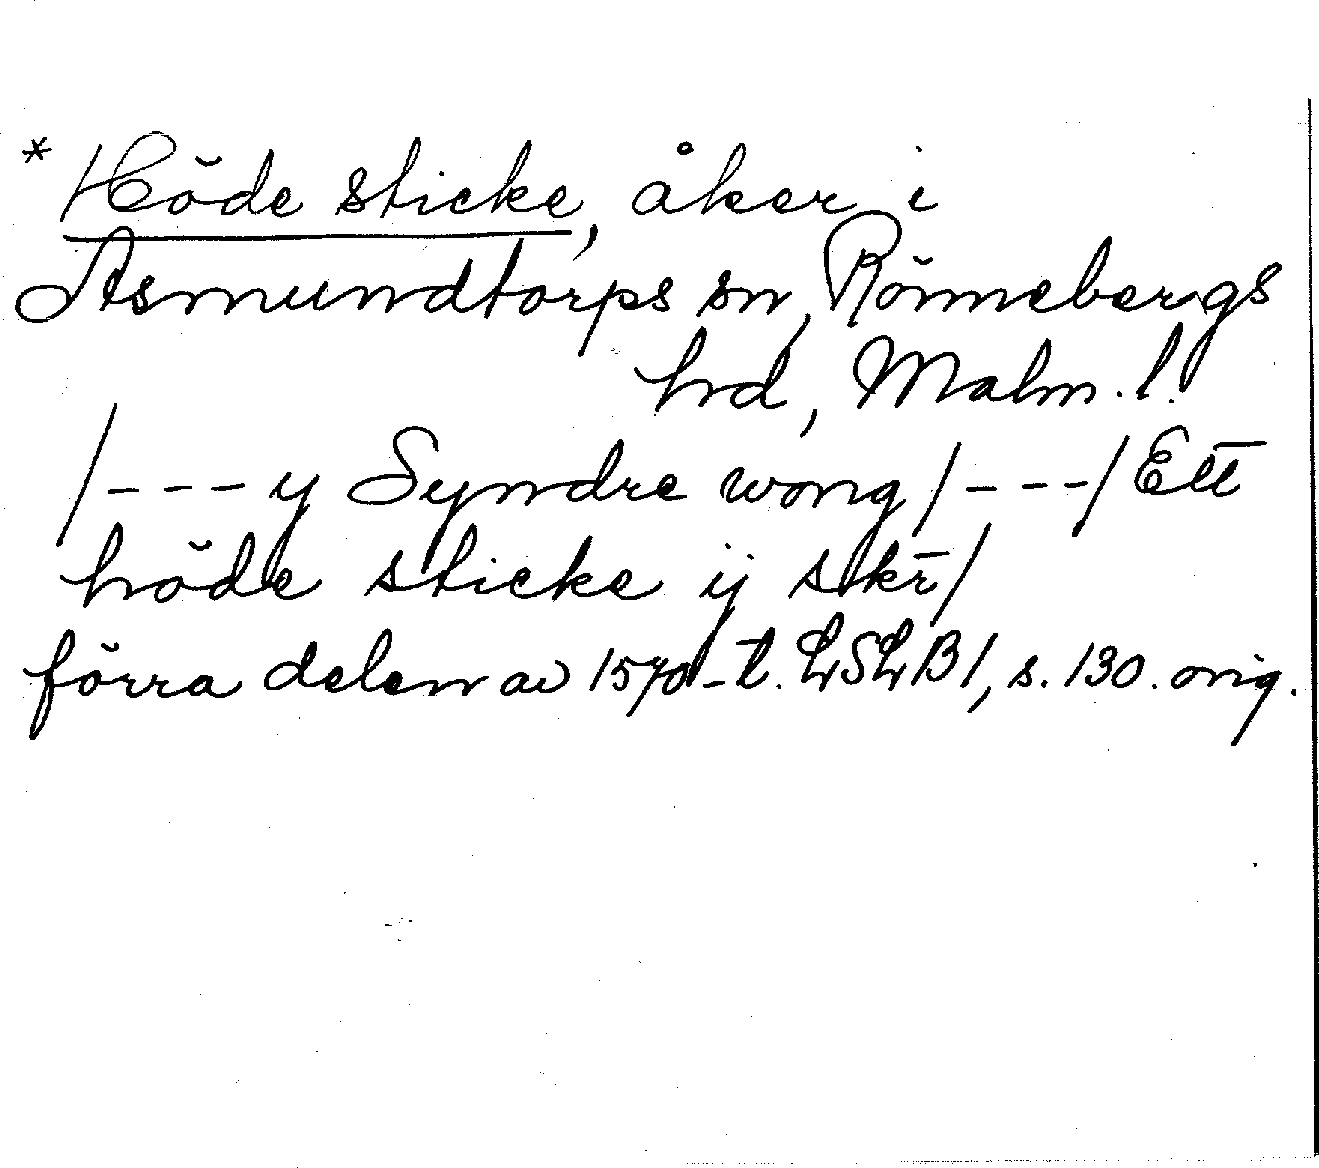 * Höde sticke, åker i
Asmundtorps sn, Rönnebergs
hd, Malm. l.
/---y Syndre wong/---/Ett
höde sticke ij skr̄/
förra delen av 1570-t. LSLB1, s. 130. orig.